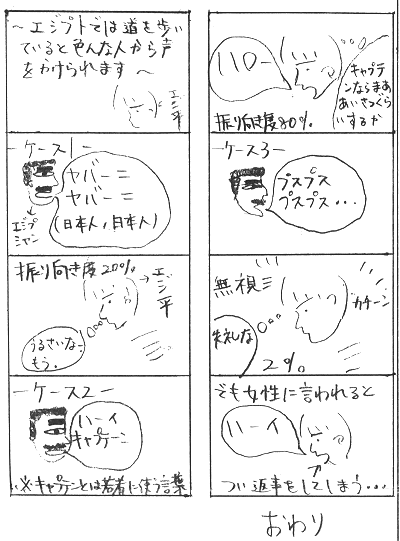 ～エジプトでは道を歩い
ていると色んな人から声
をかけられます～
エジ平
ーケース1ー
ヤバーニ
ヤバーニ
(日本人,日本人)
エジプ
シャン
振り向き度20%
エジ平
うるさいなー
もう。
ーケース2ー
ハーイ
キャプテーン
※キャプテンとは若者に使う言葉
ハロー
キャプテ
ンならまあ
あいさつぐら
いするか
振り向き度80%
ーケース3ー
プスプス
プスプス・・・
無視
カチーン
失礼な
2%
でも女性に言われると
ハーイ
プス
つい返事をしてしまう・・・
おわり